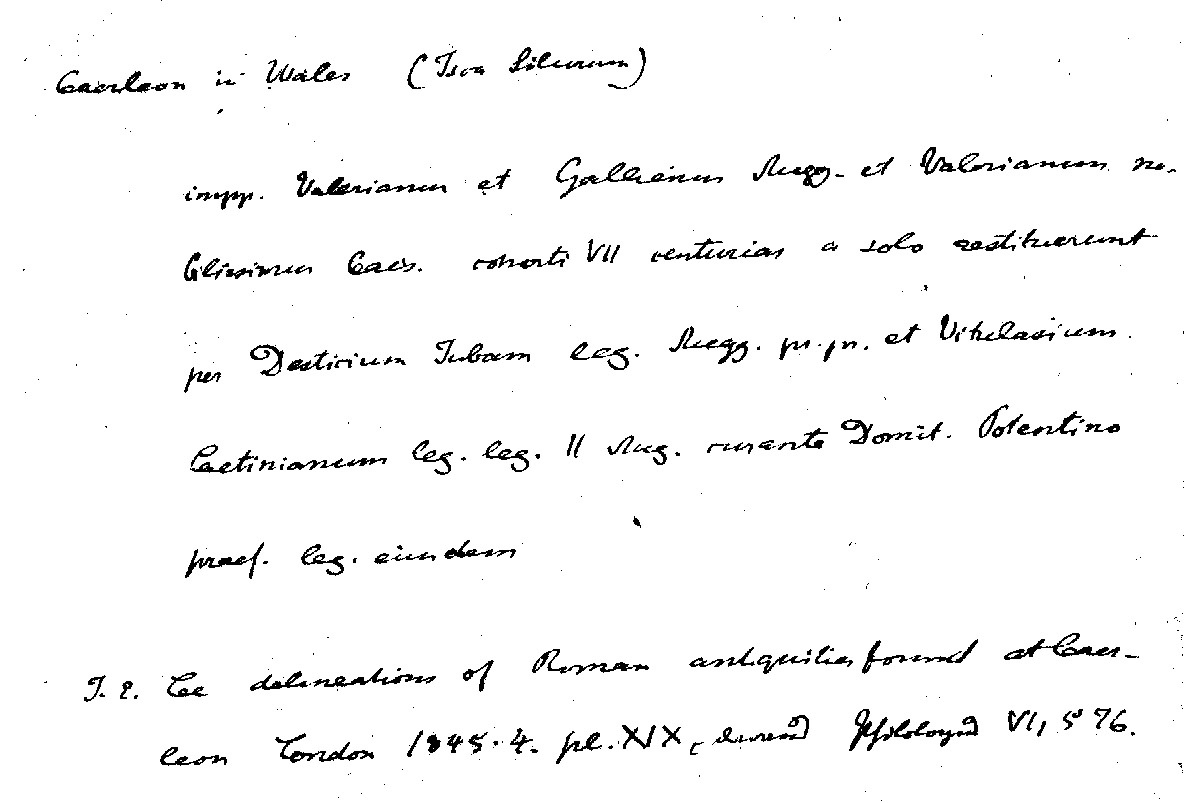 Caerleon in Wales (Isca Silurum)
impp. Valerianus et Gallienus Augg. et Valerianus no-
bilissimus Caes. cohorti VII centurias a solo restituerunt
per Desticium Iubam leg. Augg. pr. pr. et Vitulasium
Laetinianum leg. leg. II Aug. curante Domit. Potentino
praef. leg. eiusdem
J. E. Lee delineations of Roman antiquities found at Caer-
leon London 1845. 4. pl. XIX, Philolog VI, 576.